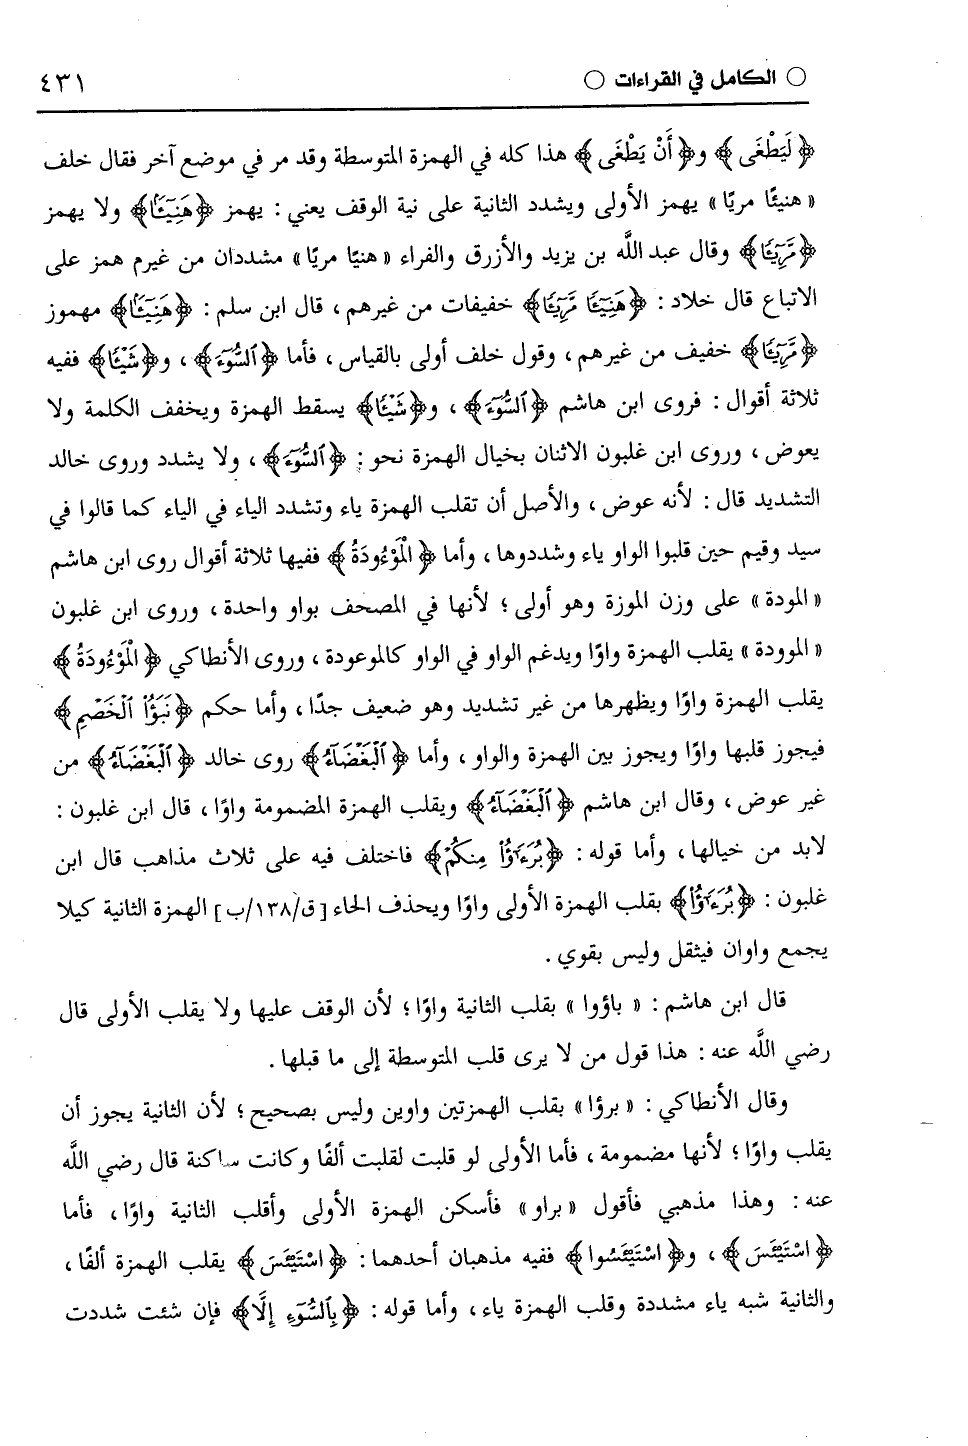 ○ الكامل في القراءات ○ ٤٣١
﴿ لَيَطْغَى ﴾ و﴿ أَنْ يَطْغَى ﴾ هذا كله في الهمزة المتوسطة وقد مر في موضع آخر فقال خلف
« هنيئًا مريًا » يهمز الأولى ويشدد الثانية على نية الوقف يعني : يهمز ﴿ هَنِيٓـًٔا ﴾ ولا يهمز
﴿ مَّرِيٓـًٔا ﴾ وقال عبد اللَّه بن يزيد والأزرق والفراء « هنيًا مريًا » مشددان من غيرم همز على
الاتباع قال خلاد : ﴿ هَنِيٓـًٔا مَّرِيٓـًٔا ﴾ خفيفات من غيرهم ، قال ابن سلم : ﴿ هَنِيٓـًٔا ﴾ مهموز
﴿ مَّرِيٓـًٔا ﴾ خفيف من غيرهم ، وقول خلف أولى بالقياس ، فأما ﴿ ٱلسُّوٓءَ ﴾ ، و﴿ شَيْـًٔا ﴾ ففيه
ثلاثة أقوال : فروى ابن هاشم ﴿ ٱلسُّوٓءَ ﴾ ، و﴿ شَيْـًٔا ﴾ يسقط الهمزة ويخفف الكلمة ولا
يعوض ، وروى ابن غلبون الاثنان بخيال الهمزة نحو : ﴿ ٱلسُّوٓءَ ﴾ ، ولا يشدد وروى خالد
التشديد قال : لأنه عوض ، والأصل أن تقلب الهمزة ياء وتشدد الياء في الياء كما قالوا في
سيد وقيم حين قلبوا الواو ياء وشددوها ، وأما ﴿ الْمَوْءُودَةُ ﴾ ففيها ثلاثة أقوال روى ابن هاشم
« المودة » على وزن الموزة وهو أولى ؛ لأنها في المصحف بواو واحدة ، وروى ابن غلبون
« الموودة » يقلب الهمزة واوًا ويدغم الواو في الواو كالموعودة ، وروى الأنطاكي ﴿ الْمَوْءُودَةُ ﴾
يقلب الهمزة واوًا ويظهرها من غير تشديد وهو ضعيف جدًا ، وأما حكم ﴿ نَبَؤُاْ ٱلْخَصْمِ ﴾
فيجوز قلبها واوًا ويجوز بين الهمزة والواو ، وأما ﴿ ٱلْبَغْضَآءُ ﴾ روى خالد ﴿ ٱلْبَغْضَآءُ ﴾ من
غير عوض ، وقال ابن هاشم ﴿ ٱلْبَغْضَآءُ ﴾ ويقلب الهمزة المضمومة واوًا ، قال ابن غلبون :
لابد من خيالها ، وأما قوله : ﴿ بُرَءَٰٓؤُاْ مِنكُمْ ﴾ فاختلف فيه على ثلاث مذاهب قال ابن
غلبون : ﴿ بُرَءَٰٓؤُاْ ﴾ بقلب الهمزة الأولى واوًا ويحذف الحاء [ ق/١٣٨/ب ] الهمزة الثانية كيلا
يجمع واوان فيثقل وليس بقوي .
قال ابن هاشم : « باؤوا » بقلب الثانية واوًا ؛ لأن الوقف عليها ولا يقلب الأولى قال
رضي اللَّه عنه : هذا قول من لا يرى قلب المتوسطة إلى ما قبلها .
وقال الأنطاكي : « برؤا » بقلب الهمزتين واوين وليس بصحيح ؛ لأن الثانية يجوز أن
يقلب واوًا ؛ لأنها مضمومة ، فأما الأولى لو قلبت لقلبت ألفًا وكانت ساكنة قال رضي اللَّه
عنه : وهذا مذهبي فأقول « براو » فأسكن الهمزة الأولى وأقلب الثانية واوًا ، فأما
﴿ اسْتَيْئَسَ ﴾ ، و﴿ اسْتَيْئَسُوا ﴾ ففيه مذهبان أحدهما : ﴿ اسْتَيْئَسَ ﴾ يقلب الهمزة ألفًا ،
والثانية شبه ياء مشددة وقلب الهمزة ياء ، وأما قوله : ﴿ بِٱلسُّوٓءِ إِلَّا ﴾ فإن شئت شددت